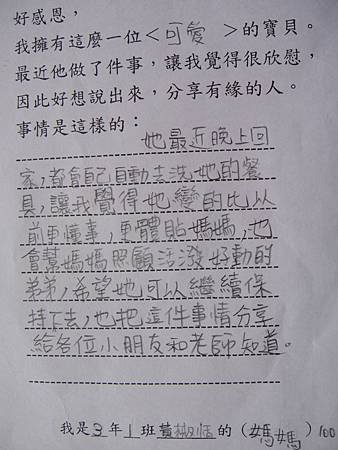 好感恩，
我擁有這麼一位＜可愛＞的寶貝。
最近他做了件事，讓我覺得很欣慰，
因此好想說出來，分享有緣的人。
事情是這樣的：
她最近晚上回
家，都會自己自動去洗她的餐
具，讓我覺得她變的比以
前更懂事，更體貼媽媽，也
會幫媽媽照顧活潑好動的
弟弟，希望她可以繼續保
持下去，也把這件事情分享
給各位小朋友和老師知道。
我是3年1班黃椒恬的（媽媽）100